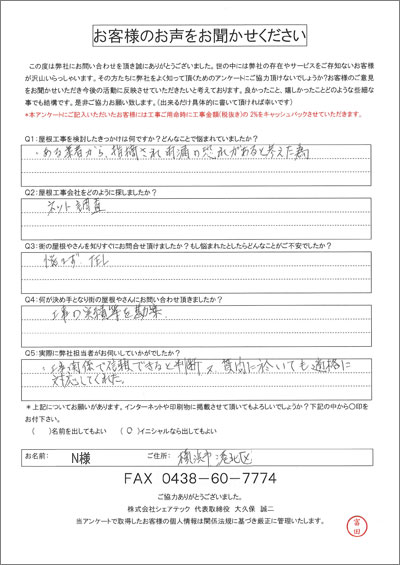 お客様のお声をお聞かせください
この度は弊社にお問い合わせを頂き誠にありがとうございました。世の中には弊社の存在やサービスをご存知ないお客様
が沢山いらっしゃいます。その方たちに弊社をよく知って頂くためのアンケートにご協力頂けないでしょうか?お客様のご意見
をお聞かせいただき今後の活動に反映させていただきたいと考えております。良かったこと、嬉しかったことどのような些細な
事でも結構です。是非ご協力お願い致します。(出来るだけ具体的に書いて頂ければ幸いです)
*本アンケートにご記入いただいたお客様には工事ご用命時に工事金額(税抜き)の2%をキャッシュバックさせていただきます。
Q1:屋根工事を検討したきっかけは何ですか?どんなことで悩まれていましたか?
・ある業者から、指摘され雨漏の恐れがあると考えた為
Q2:屋根工事会社をどのように探しましたか?
ネット調査
Q3:街の屋根やさんを知りすぐにお問合せ頂けましたか?もし悩まれたとしたらどんなことがご不安でしたか?
悩まず TEL
Q4:何が決め手となり街の屋根やさんにお問い合わせ頂きましたか?
工事の実績等を勘案
Q5:実際に弊社担当者がお伺いしていかがでしたか?
・工事関係で信頼できると判断 又、質問に於いても適格に
対応してくれた。
*上記についてお願いがあります。インターネットや印刷物に掲載させて頂いてもよろしいでしょうか?下記の中から〇印を
お付下さい。
( )名前を出してもよい (○)イニシャルなら出してもよい
お名前: N様 ご住所: 横浜市港北区
FAX 0438-60-7774
ご協力ありがとうございました。
株式会社シェアテック 代表取締役 大久保 誠二
当アンケートで取得したお客様の個人情報は関係法規に基づき厳正に管理いたします。
富田